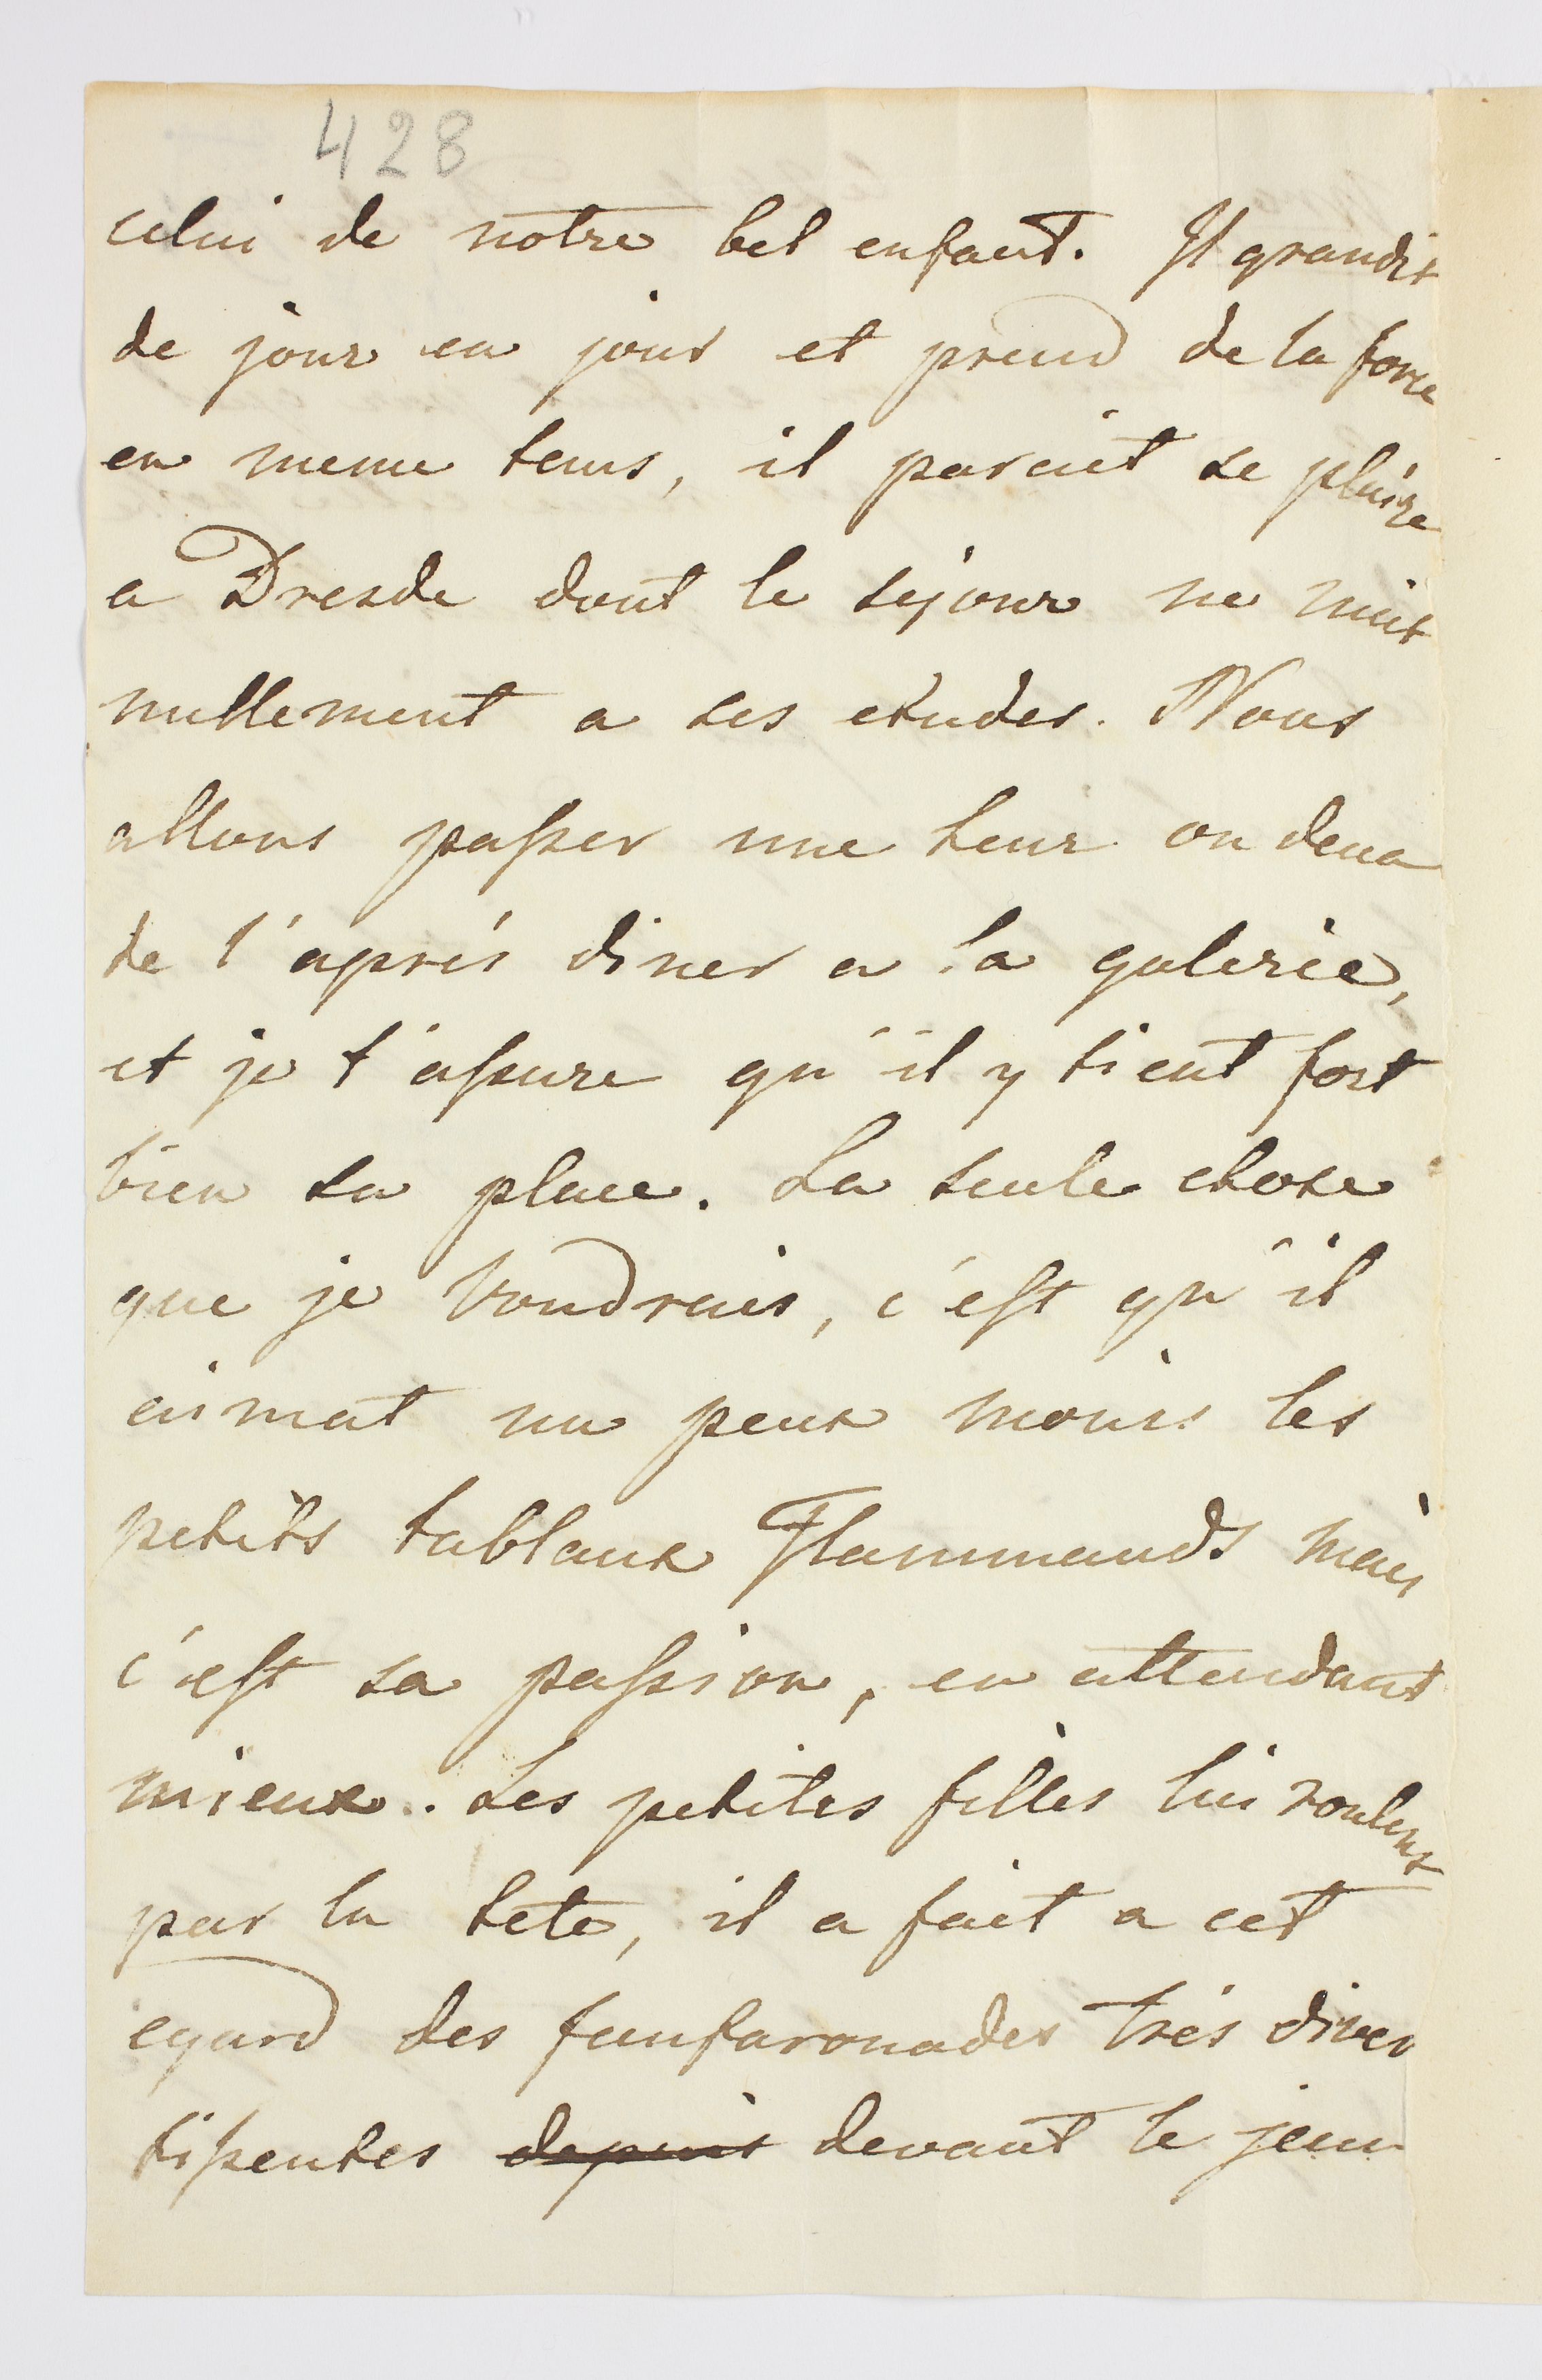 428
celui de notre bel enfant. Il grandit
de jour en jour et prend de la force
en meme tems, il parait se plaire
a Dresde dont le sejour ne nuit
nullement a ses etudes. Nous
allons passer une heur ou deux
de l'aprés diner a la galerie,
et je t'assure qu'il y tient fort
bien sa place. La seule chose
que je voudrais, c'est qu'il
aimat un peux moins les
petits tablaux Flammands mais
c'est sa passion, en attendant
mieux.. Les petites filles lui roulent
par la tete, il a fait a cet
egard des fanfaronades trés diver
tissentes depuis devant le jeun